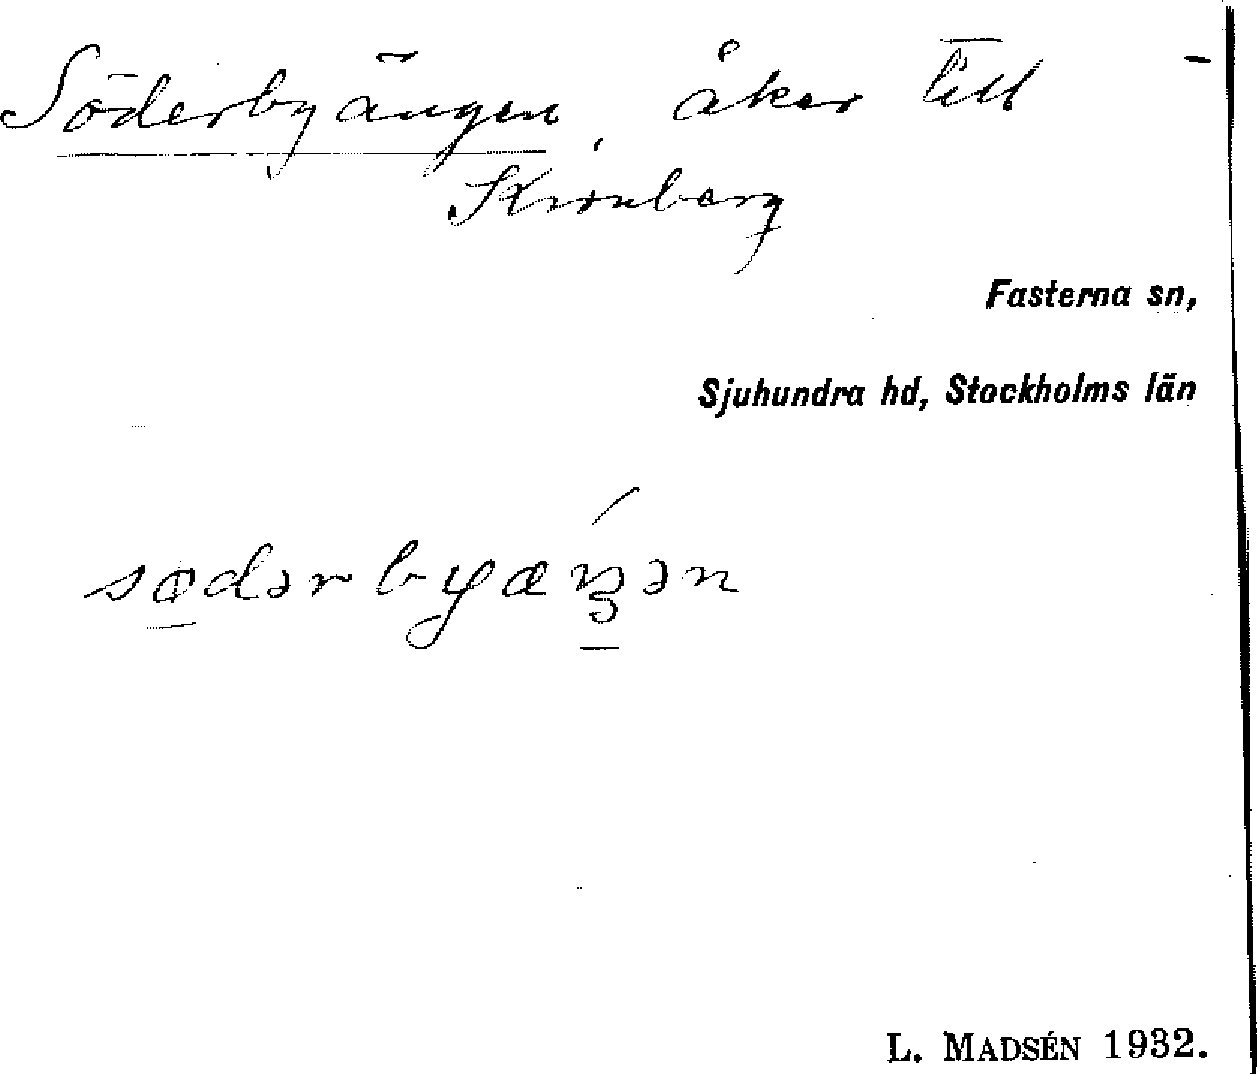 Söderbyängen, åker till
Kronberg
Fasterna sn,
Sjuhundra hd, Stockholms län
L. MADSÉN 1932.